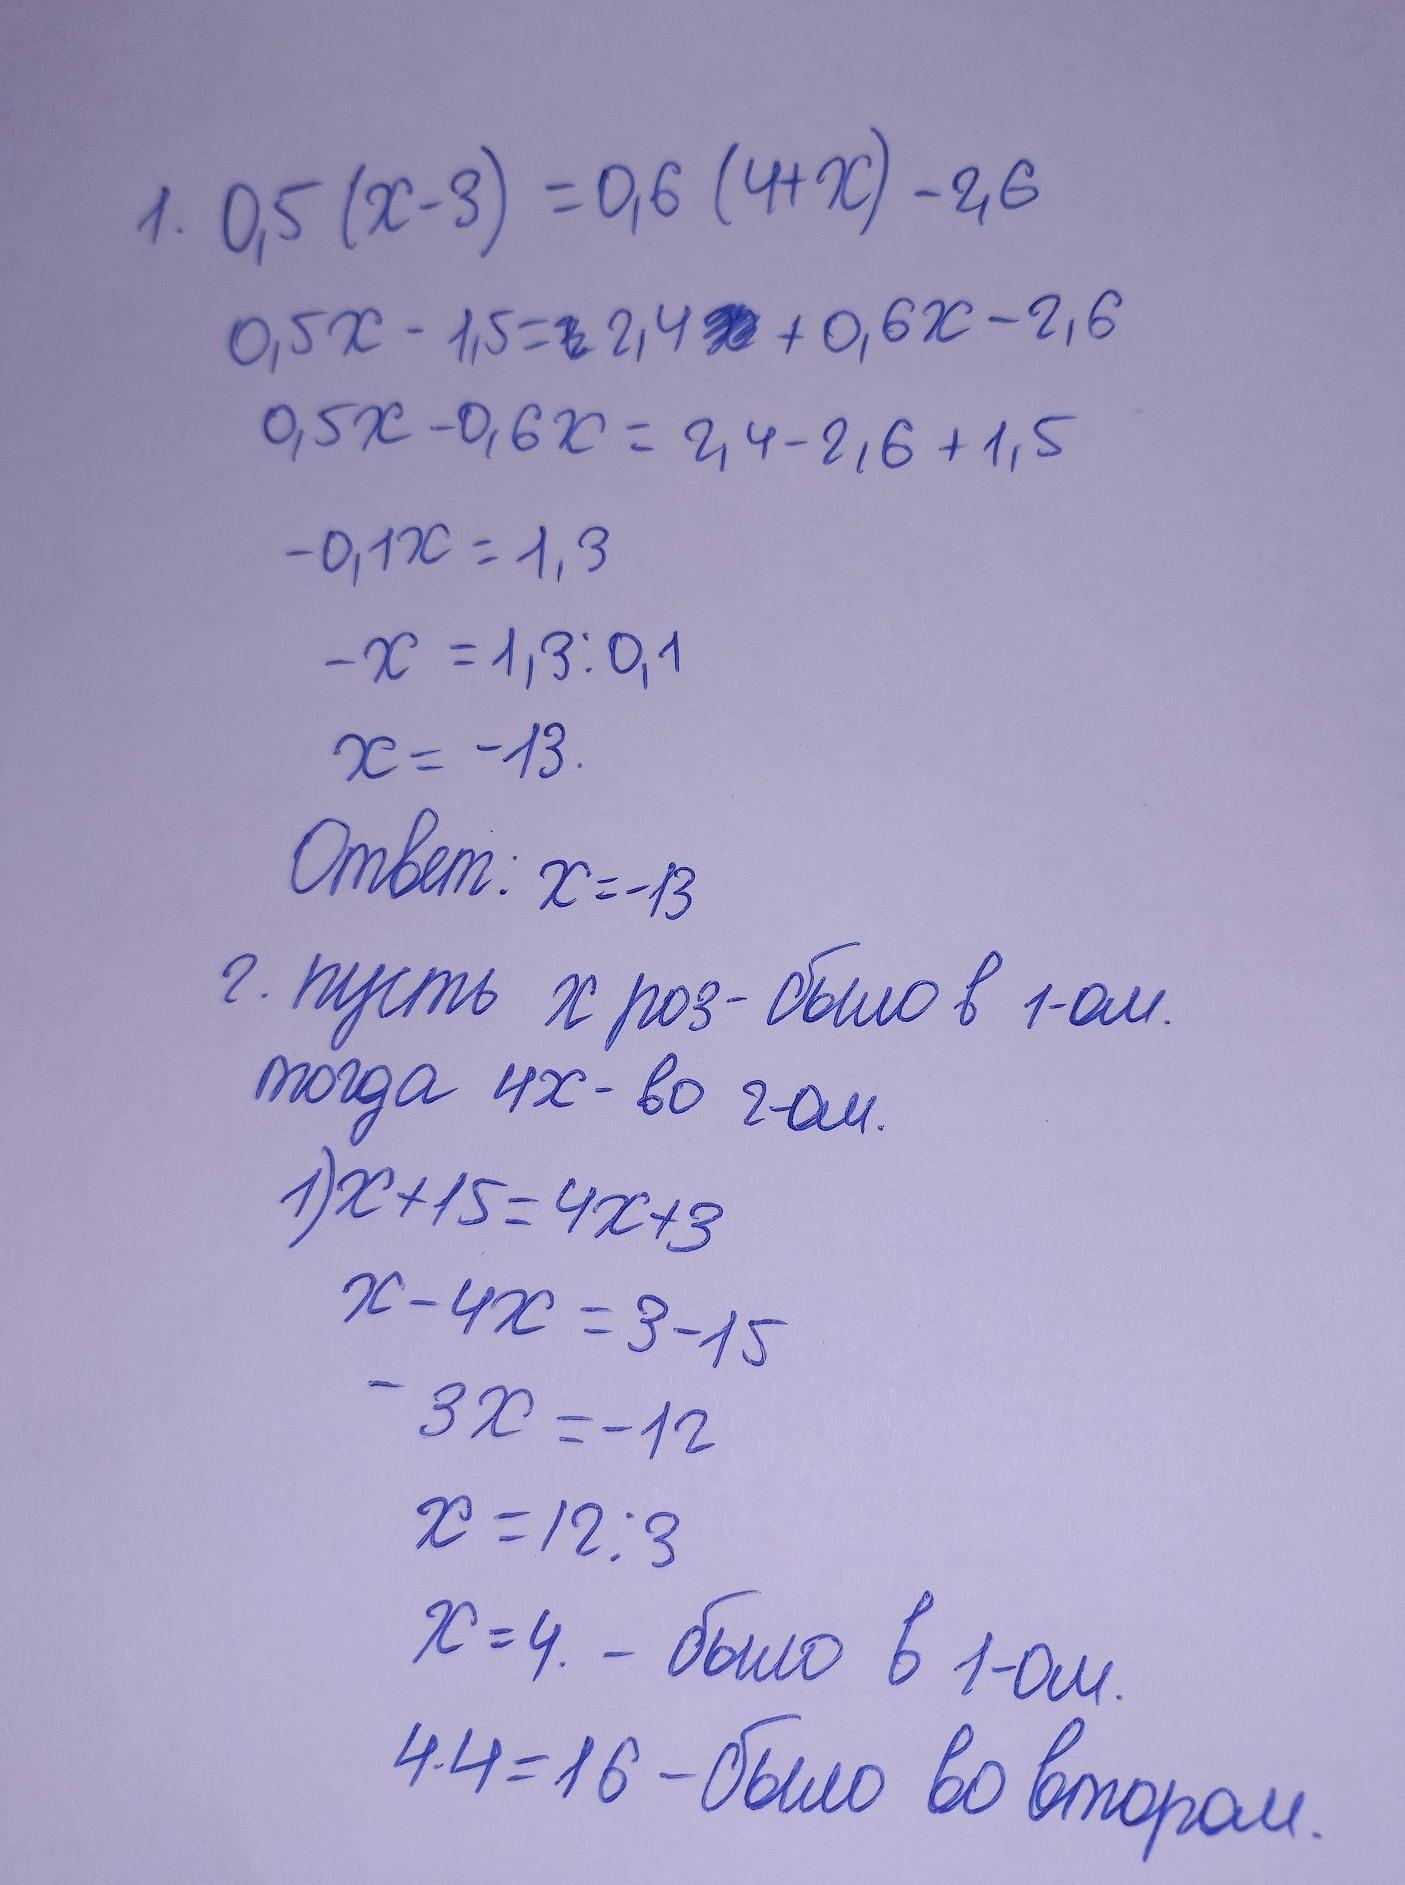 1. 0,5(x-3) = 0,6(4+x) - 2,6
0,5x - 1,5 = 2,4 + 0,6x - 2,6
0,5x - 0,6x = 2,4 - 2,6 + 1,5
-0,1x = 1,3
-x = 1,3:0,1
x = -13.
Ответ: x = -13
2. пусть x роз - было в 1-ом.
тогда 4x - во 2-ом.
1) x+15 = 4x+3
x - 4x = 3 - 15
- 3x = -12
x = 12:3
x = 4. - было в 1-ом.
4·4 = 16 - было во втором.